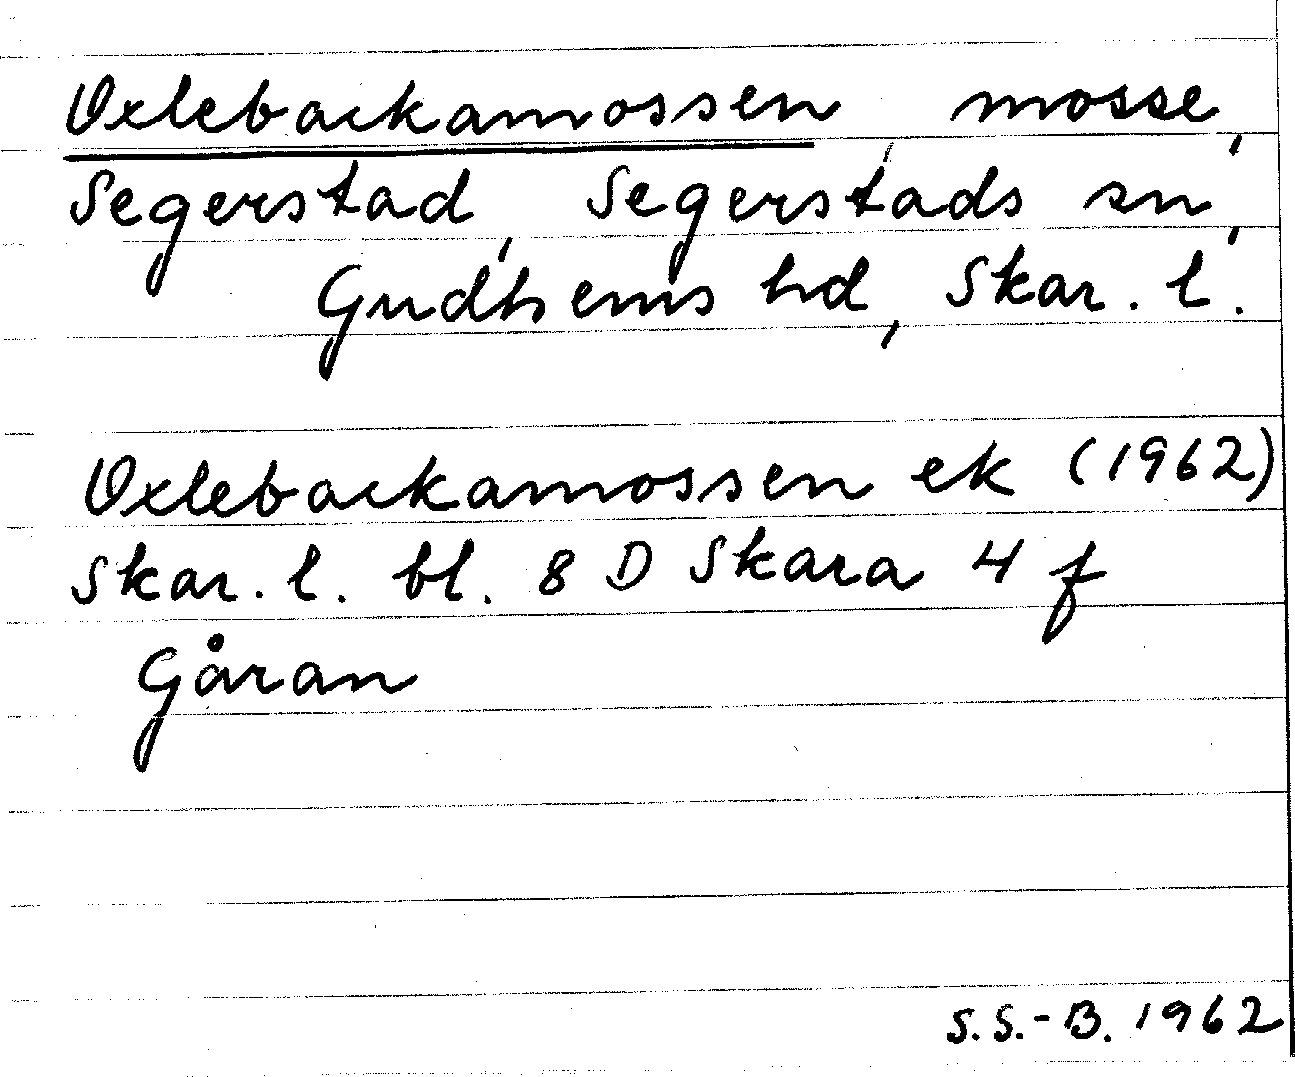 Oxlebackamossen, mosse,
Segerstad, Segerstads sn,
Gudhems hd, Skar. l.
Oxlebackamossen ek (1962)
Skar. l. bl. 8 D Skara 4 f
Gåran
S.S.-B. 1962